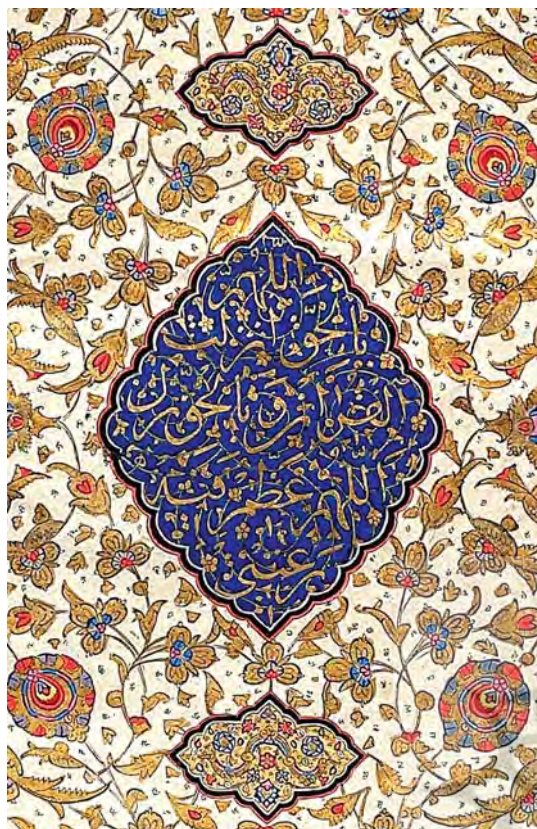 اللهم
بالحق انزلت
القران وبالحق نزل
اللهم عظم
رغبتي